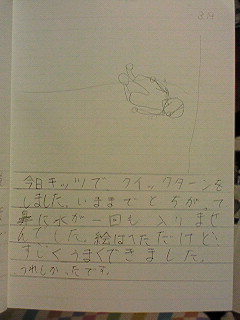 3/4
今日キッツで クイックターンを
しました。いままでとちがって
鼻に水が一回も入りませ
んでした。絵はへただけど、
すごくうまくできました。
うれしかったです。